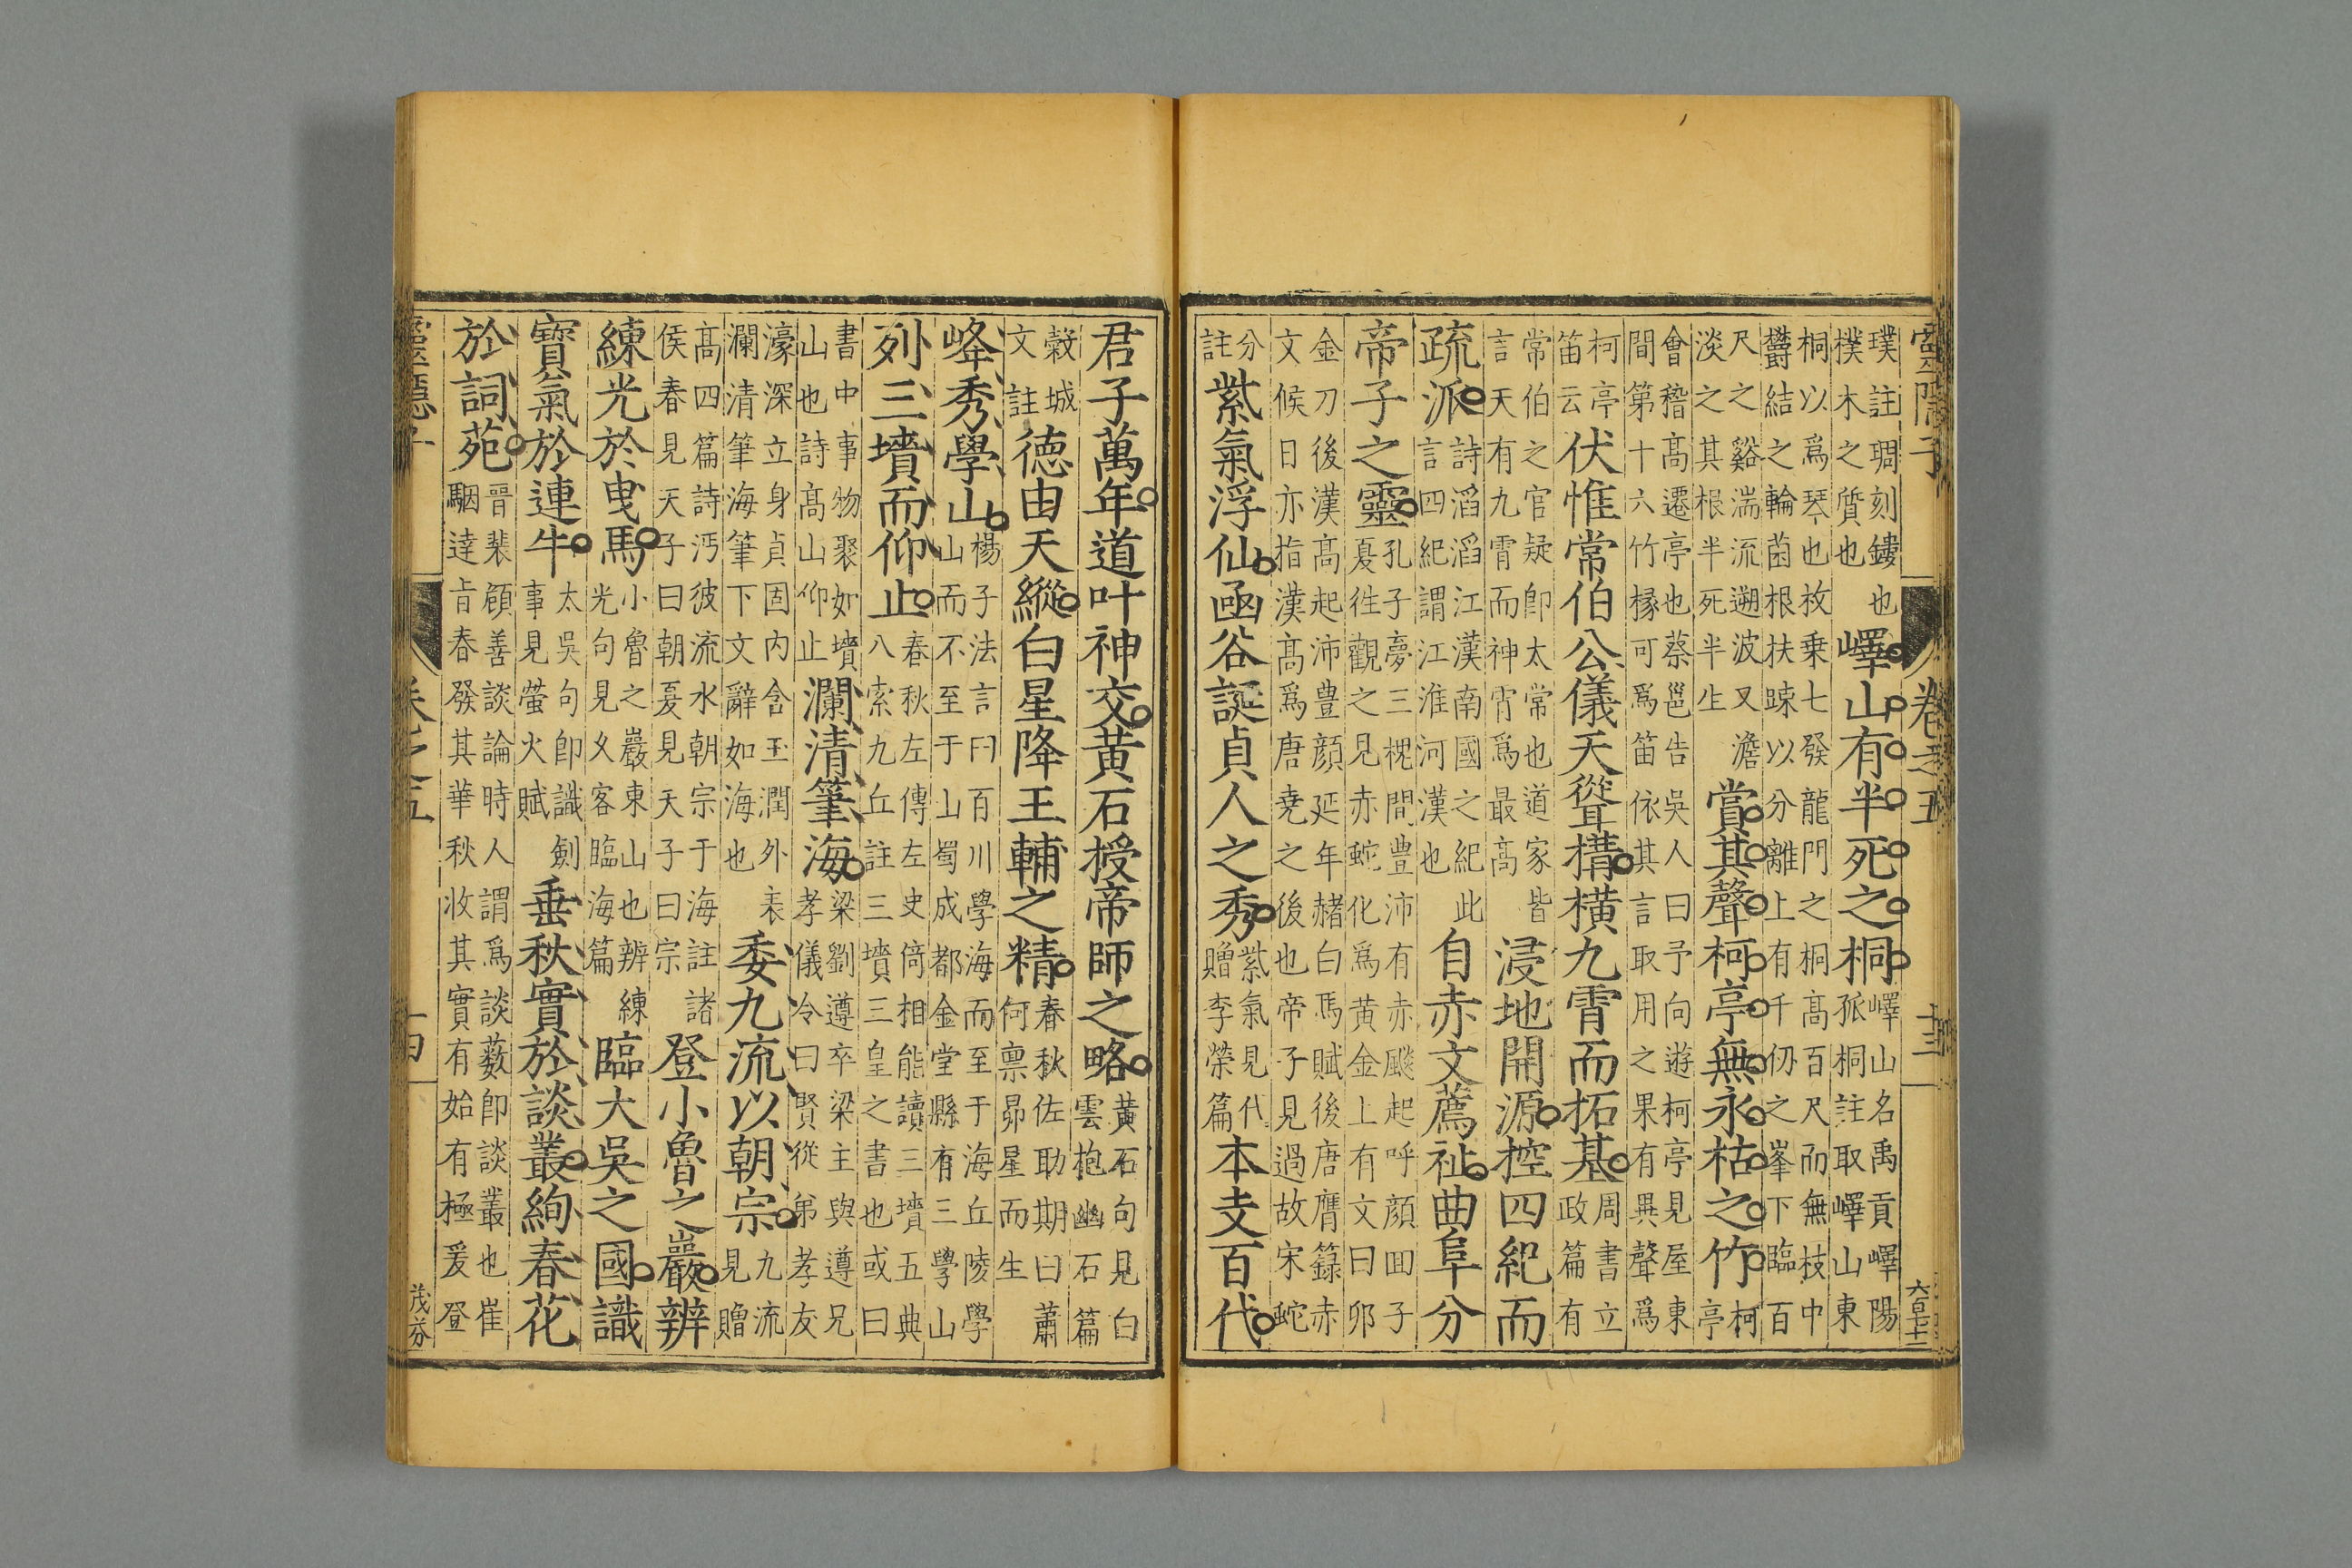 靈隱子
卷之五
十三
璞註琱刻鏤也
樸木之質也
嶧山有半死之桐
嶧山名禹貢嶧陽
孤桐註取嶧山東
桐以爲琴也枚乗七發龍門之桐髙百尺而無枝中
鬱結之輪菌根扶踈以分離上有千仭之峯下臨百
尺之谿湍流遡波又澹
淡之其根半死半生
賞其聲柯亭無永枯之竹
柯
亭
會稽髙遷亭也蔡邕告吳人曰予向遊柯亭見屋東
間第十六竹椽可爲笛依其言取用之果有異聲爲
柯亭
笛云
伏惟常伯公儀天聳構橫九霄而拓基
周書立
政篇有
常伯之官疑卽太常也道家皆
言天有九霄而神霄爲最髙
浸地開源控四紀而
疏派
詩滔滔江漢南國之紀此
言四紀謂江淮河漢也
自赤文薦祉曲阜分
帝子之靈
孔子夢三槐間豊沛有赤颷起呼顔囬子
夏徃觀之見赤蛇化爲黄金上有文曰卯
金刀後漢髙起沛豊顔延年赭白馬賦後唐膺籙赤
文候日亦指漢髙爲唐尭之後也帝子見過故宋蛇
分
註
紫氣浮仙凾谷誕貞人之秀
紫氣見代
贈李榮篇
本支百代
君子萬年道叶神交黄石授帝師之略
黄石句見白
雲抱幽石篇
穀城
文註
徳由天縱白星降王輔之精
春秋佐助期曰蕭
何禀昴星而生
峰秀學山
楊子法言曰百川學海而至于海丘陵學
山而不至于山蜀成都金堂縣有三學山
列三墳而仰止
春秋左傳左史倚相能讀三墳五典
八索九丘註三墳三皇之書也或曰
書中事物聚如墳
山也詩髙山仰止
瀾清筆海
梁劉遵卒梁主與遵兄
孝儀令曰賢從弟孝友
濠深立身貞固内含玉潤外表
瀾清筆海筆下文辭如海也
委九流以朝宗
九流
見贈
髙四篇詩沔彼流水朝宗于海註諸
侯春見天子曰朝夏見天子曰宗
登小魯之巖辨
練光於曳馬
小魯之巖東山也辨練
光句見夂客臨海篇
臨大吳之國識
寳氣於連牛
太吳句卽識劍
事見螢火賦
垂秋實於談叢絢春花
於詞苑
晉裴頠善談論時人謂爲談藪卽談叢也崔
駰達㫖春發其華秋收其實有始有極爰登
靈隱子
卷之五
十四
茂芬